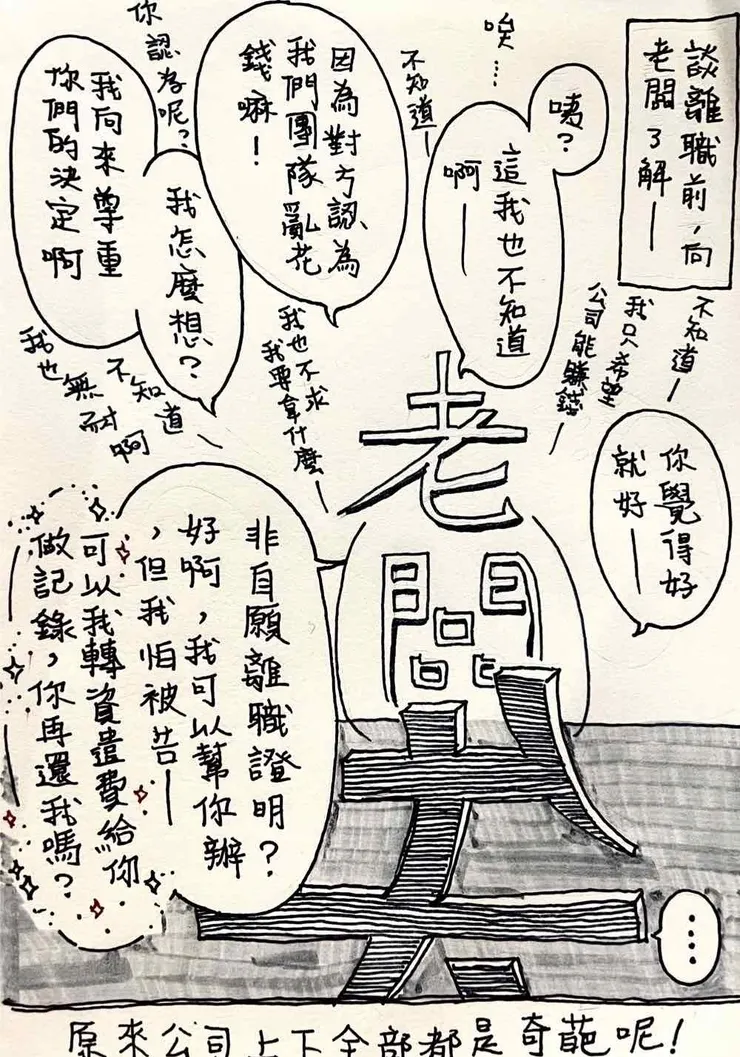 談離職前，向
老闆了解——
咦？
這我也不知道
啊——
唉…
不知道—
因為對方認為
我們團隊亂花
錢嘛！
你認為呢？
我怎麼想？
我向來尊重
你們的決定啊
不知道—
我只希望
公司能賺錢
你覺得好
就好——
我也不求
我要拿什麼—
不知道
無耐啊
我也
老闆
非自願離職證明？
好啊，我可以幫你辦
，但我怕被告—
可以我轉資遣費給你
做記錄，你再還我嗎？
…
原來公司上下全部都是奇葩呢！